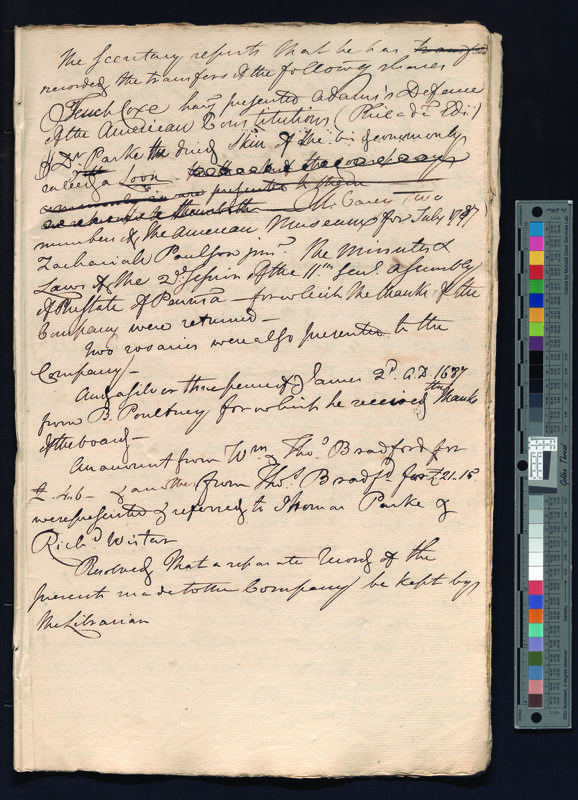 The Secretary reports that he has transfer
recorded the transfers of the following shares
Tench Coxe having presented Adams's Defence
of the American Constitutions (Philada. Edit)
Dr. Parke the dried Skin of the bird commonly
called a Loon
are presented to the
Mr. Carey two
numbers of the American Museum for July 1787
Zachariah Poulson junr. The Minutes &
Laws of the 2d. Session of the 11th Genl. Assembly
of the State of Pennsa — for which the thanks of the
Company were returned —
Two rosaries were also presented to the
Company —
And a silver three penny of James 2d. A.D. 1687
from B. Poultney for which he received the thanks
of the board —
An account from Wm & Thos. Bradford for
£ .4.6 — & another from Thos. Bradfd. for £21.15
were presented & referred to Thomas Parke &
Richd. Wistar
Resolved that a separate record of the
presents made to the Company be kept by
the Librarian